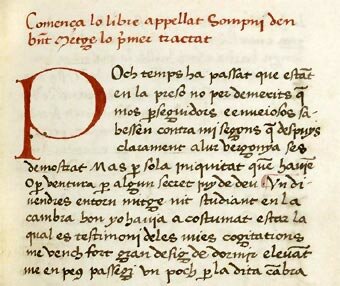 Comença lo libre appellat Sompni den
bñt Metge lo p̃mer tractat
POch temps ha passat que estãt
en la preso no per demerits q̃
mos p̱seguidors e enueiosos sa-
bessen contra mi segons q̃ despuys
clarament a lur vergonya ses
demostrat Mas p̱ sola iniquitat que hauiẽ
O p̱ ventura p̱ algun secret juy de deu Vn di-
uendres entorn mitge nit studiant en la
cambra hon yo hauia acostumat estar la
qual es testimoni deles mies cogitations
me vench fort gran desig de dormir e leuãt
me en peus passegi vn poch p̱ la dita cãbra